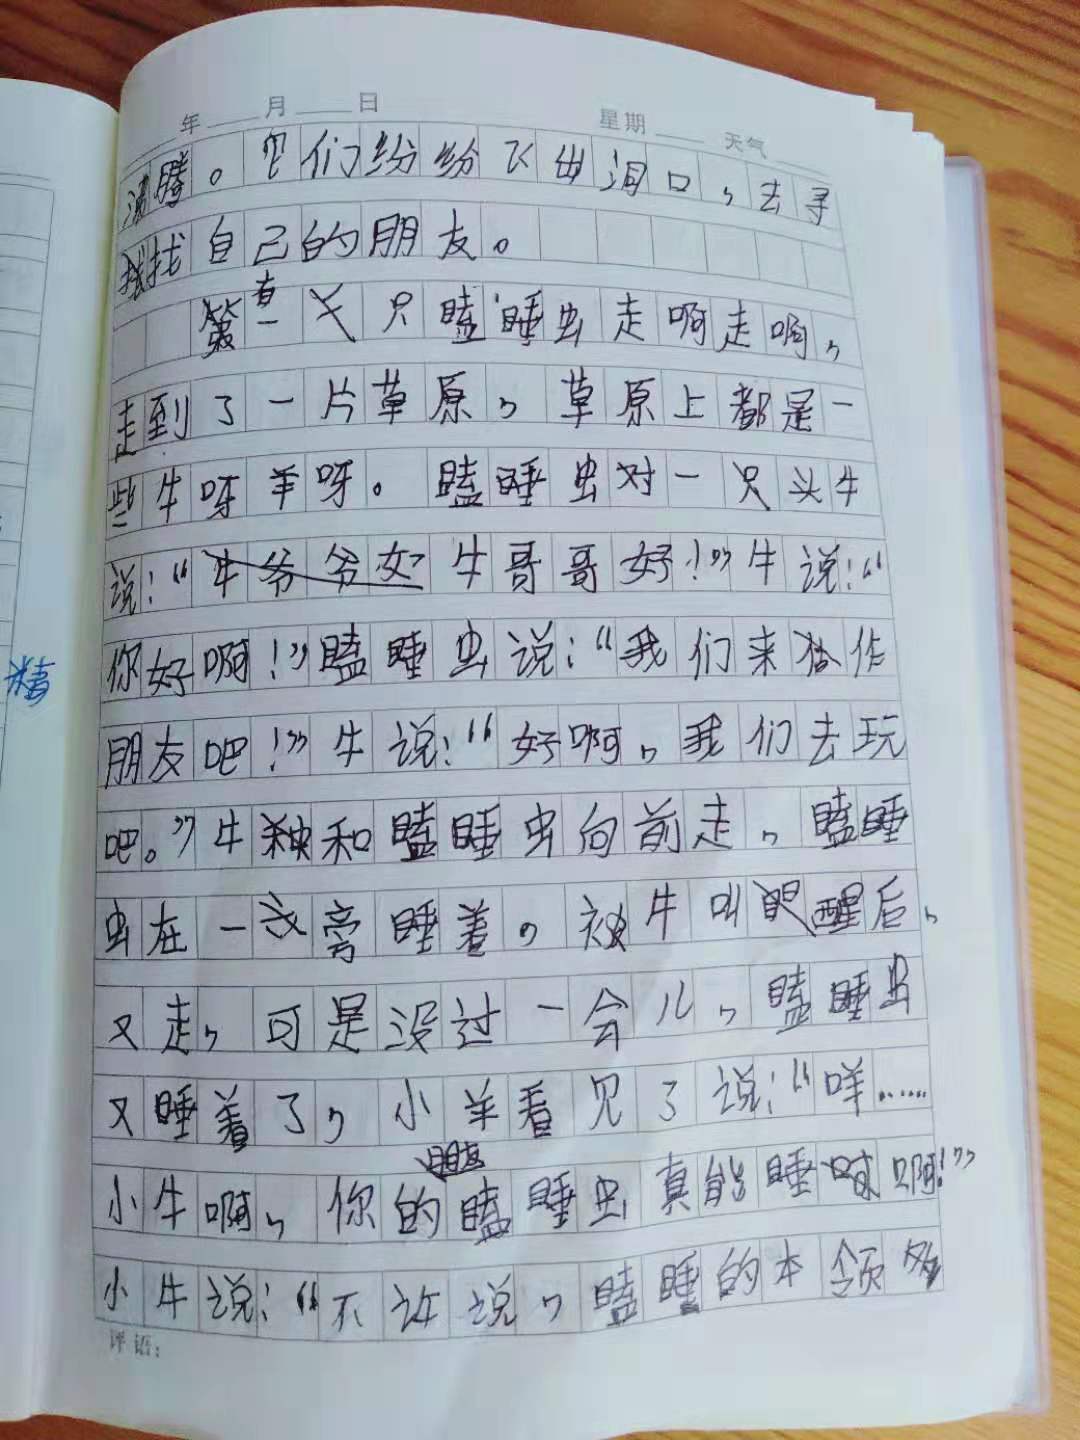 年 月 日 星期 天气
沸腾。它们纷纷飞出洞口，去寻
找自己的朋友。
有一只瞌睡虫走啊走啊，
走到了一片草原，草原上都是一
些牛呀羊呀。瞌睡虫对一只头牛
说：“牛爷爷好牛哥哥好！”牛说：“
你好啊！”瞌睡虫说：“我们来作
朋友吧！”牛说：“好啊，我们去玩
吧。”牛和瞌睡虫向前走，瞌睡
虫在一旁睡着，被牛叫醒后，
又走，可是没过一会儿，瞌睡虫
又睡着了，小羊看见了说：“咩……
小牛啊，你的瞌睡虫真能睡啊！”
小牛说：“不许说，瞌睡的本领多
评语：
精